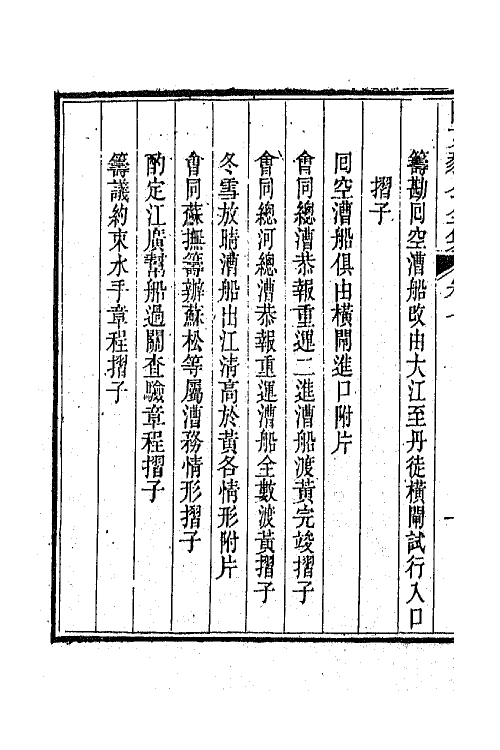 籌勘囘空漕船改由大江至丹徒橫閘試行入口
摺子
囘空漕船俱由橫閘進口附片
會同總漕恭報重運二進漕船渡黃完竣摺子
會同總河總漕恭報重運漕船全數渡黃摺子
冬雪放晴漕船出江淸高於黃各情形附片
會同蘇撫籌辦蘇松等屬漕務情形摺子
酌定江廣幫船過關查驗章程摺子
籌議約束水手章程摺子